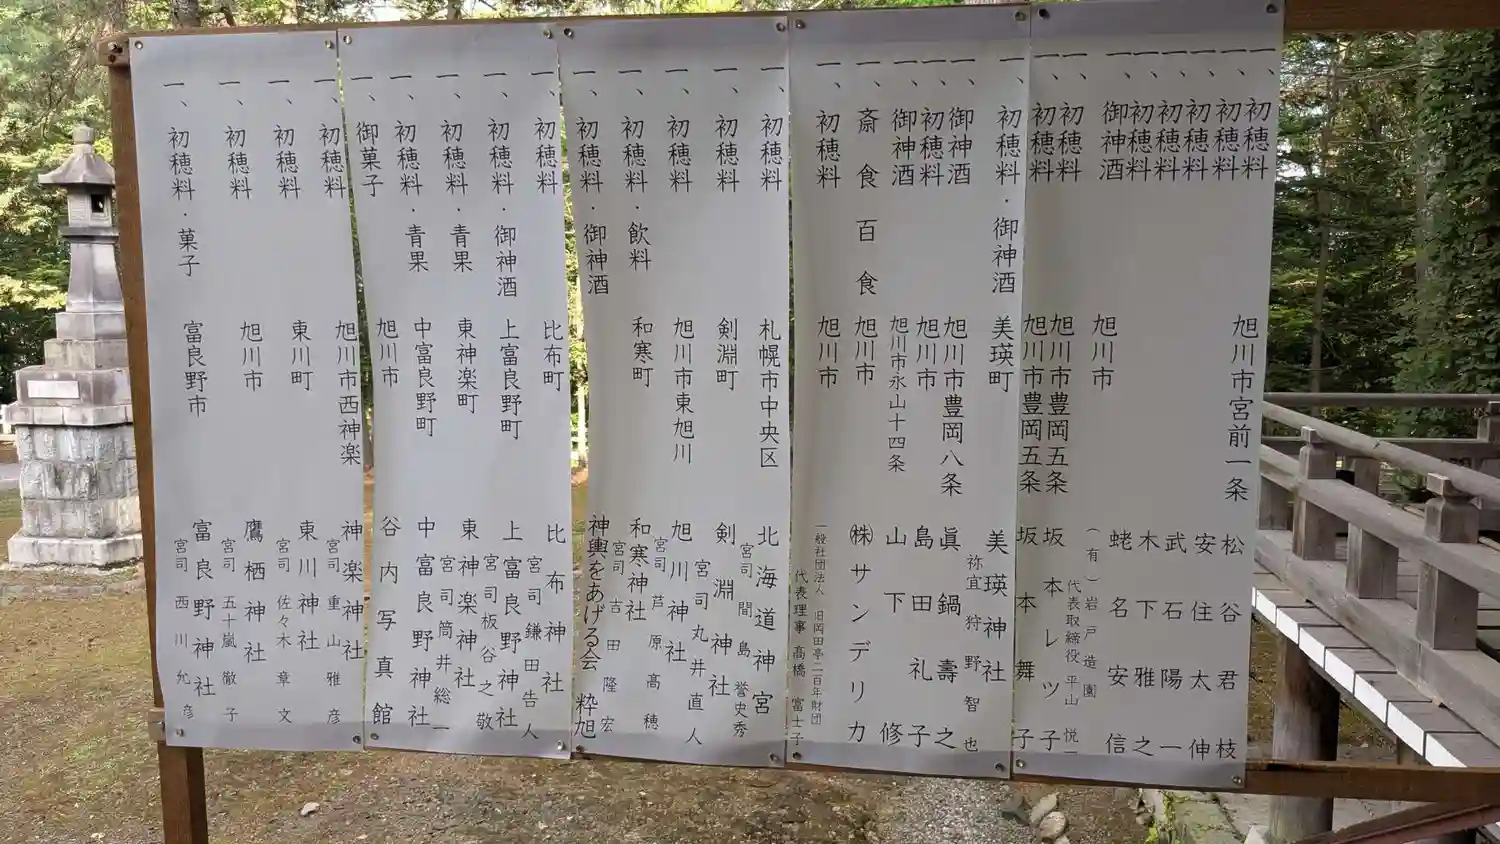 一、初穂料 旭川市宮前一条 松谷君枝
一、初穂料 安住太伸
一、初穂料 武石陽一
一、初穂料 木下雅之
一、初穂料 蛯名安信
一、御神酒 旭川市 (有)岩戸造園 代表取締役 平山 悦一
一、初穂料 旭川市豊岡五条 坂本レツ子
一、初穂料 旭川市豊岡五条 坂本舞子
一、初穂料・御神酒 美瑛町 美瑛神社 祢宜 狩野智也
一、御神酒 旭川市豊岡八条 眞鍋壽之
一、初穂料 旭川市 島田礼子
一、御神酒 旭川市永山十四条 山下 修
一、斎食百食 旭川市 ㈱サンデリカ
一、初穂料 旭川市 一般社団法人 旧岡田亭二百年財団 代表理事 髙橋 富士子
一、初穂料 札幌市中央区 北海道神宮
一、初穂料 剣淵町 剣淵神社 宮司 間島誉史秀
一、初穂料 旭川市東旭川 旭川神社 宮司 丸井直人
一、初穂料・飲料 和寒町 和寒神社 宮司 芦原髙穂
一、初穂料・御神酒 神輿をあげる会 粋旭 宮司 吉田隆宏
一、初穂料 比布町 比布神社
一、初穂料・御神酒 上富良野町 上富良野神社 宮司 鎌田告人
一、初穂料・青果 東神楽町 東神楽神社 宮司 板谷之敬
一、初穂料・青果 中富良野町 中富良野神社 宮司 筒井総一
一、御菓子 旭川市 谷内写真館
一、初穂料 旭川市西神楽 神楽神社
一、初穂料 東川町 東川神社 宮司 重山雅彦
一、初穂料 旭川市 鷹栖神社 宮司 佐々木章文
一、初穂料・菓子 富良野市 富良野神社 宮司 五十嵐徹子
宮司 西川允彦